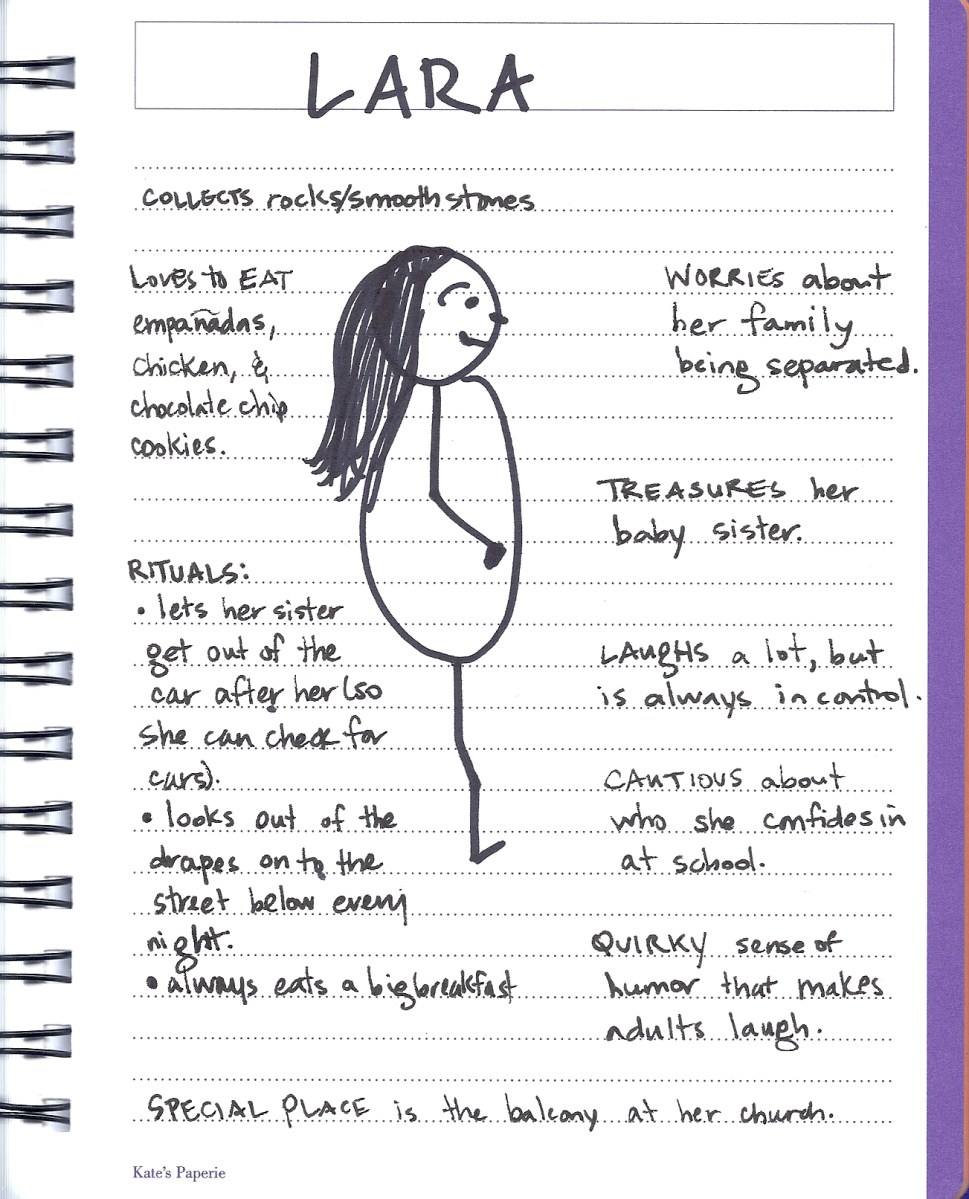 LARA
COLLECTS rocks/smooth stones
LOVES to EAT
empañadas,
chicken, &
chocolate chip
cookies.
WORRIES about
her family
being separated.
TREASURES her
baby sister.
RITUALS:
• lets her sister
get out of the
car after her (so
she can check for
cars).
• looks out of the
drapes on to the
street below every
night.
• always eats a big breakfast
LAUGHS a lot, but
is always in control.
CAUTIOUS about
who she confides in
at school.
QUIRKY sense of
humor that makes
adults laugh.
SPECIAL PLACE is the balcony at her church.
Kate's Paperie